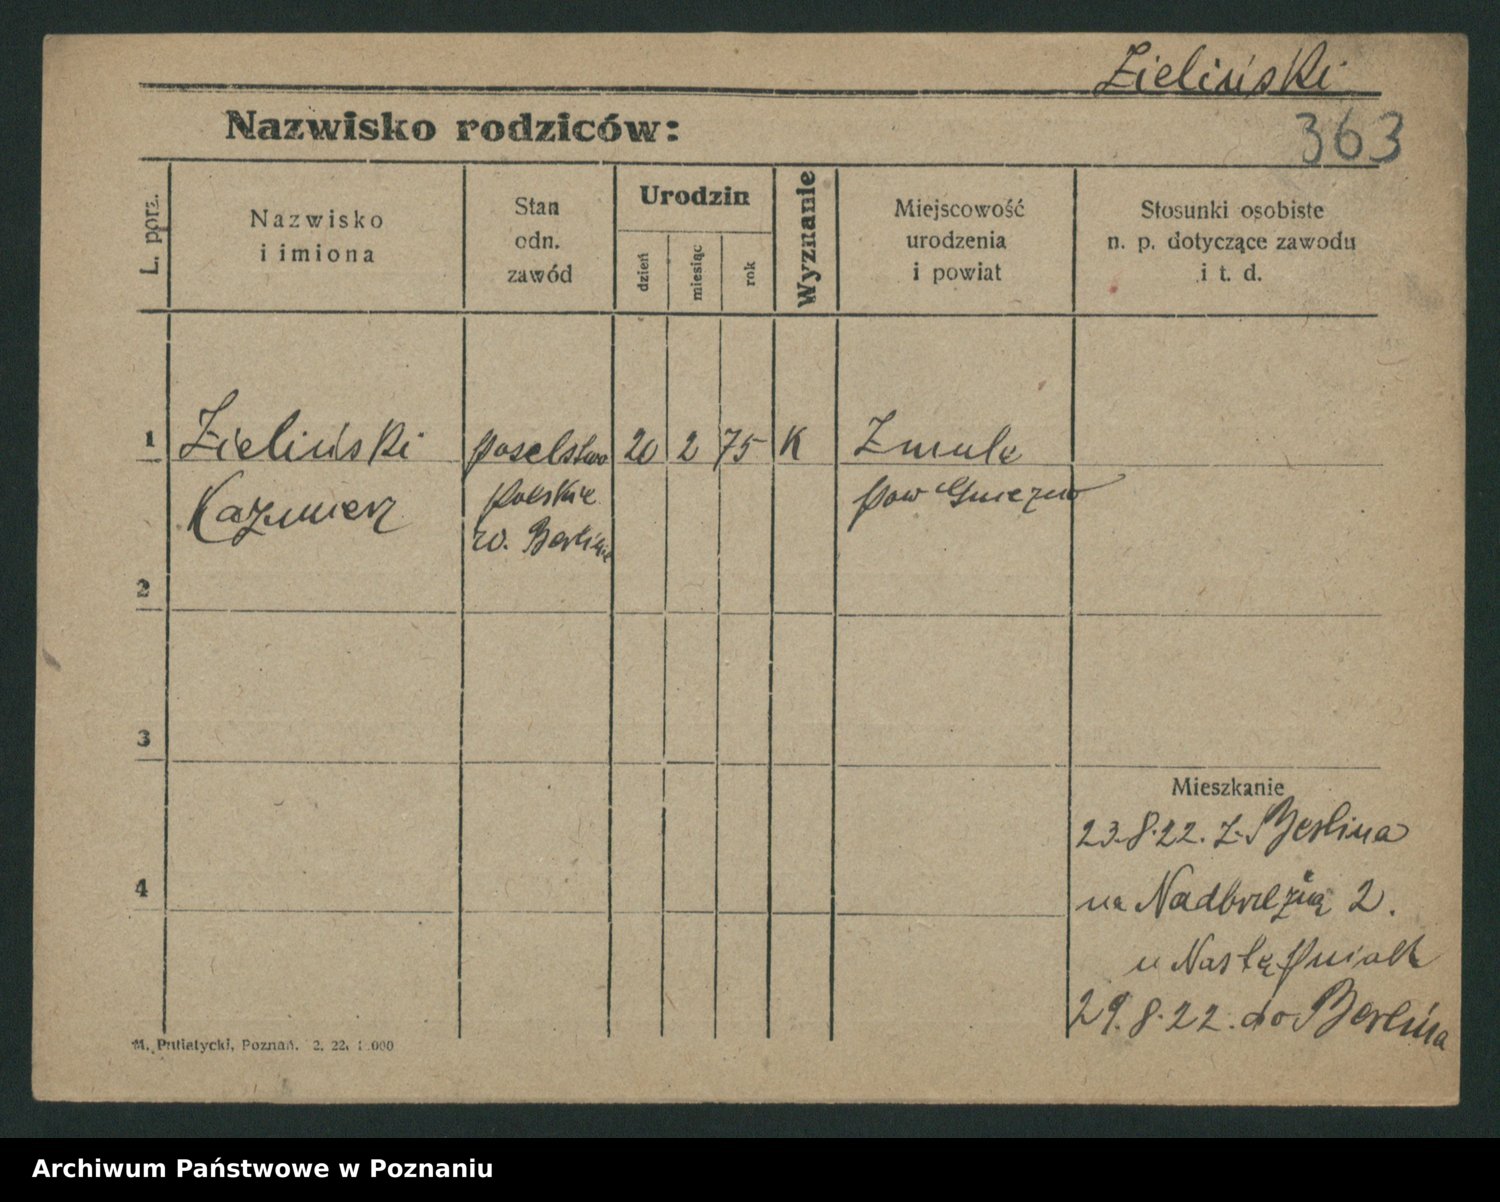 Zieliński
Nazwisko rodziców:
363
L. porz.
Nazwisko
i imiona
Stan
odn.
zawód
Urodzin
dzień
miesiąc
rok
Wyznanie
Miejscowość
urodzenia
i powiat
Stosunki osobiste
n. p. dotyczące zawodu
i t. d.
1
Zieliński
Kazimierz
poselstwo
polskie
w. Berlinie
20
2
75
K
pow Gniezno
2
3
4
Mieszkanie
23.8.22. z Berlina
na 2.
u
29.8.22. do Berlina
M. Putiatycki, Poznań. 2. 22. 1.000
Archiwum Państwowe w Poznaniu